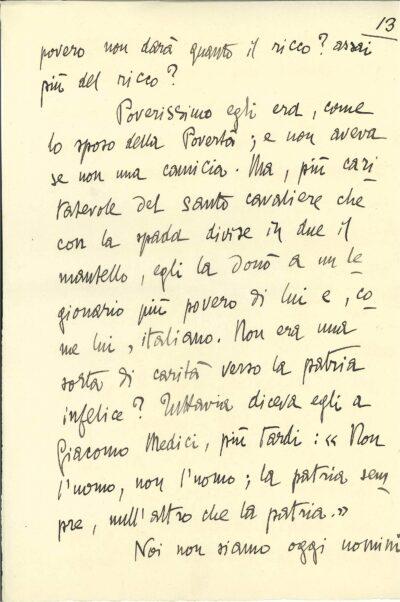 13
povero non darà quanto il ricco? assai
più del ricco?
Poverissimo egli era, come
lo sposo della Povertà; e non aveva
se non una camicia. Ma, più cari
tatevole del santo cavaliere che
con la spada divise in due il
mantello, egli la donò a un le
gionario più povero di lui e, co
me lui, italiano. Non era una
sorta di carità verso la patria
infelice? Tuttavia diceva egli a
Giacomo Medici, più tardi: «Non
l'uomo, non l'uomo; la patria sem
pre, null'altro che la patria.»
Noi non siamo oggi uomini